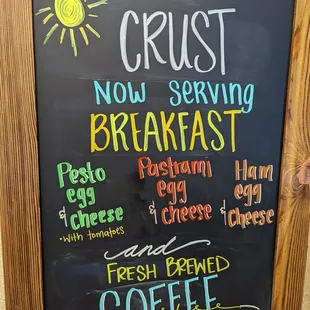 CRUST
NOW serving
BREAKFAST
Pesto
egg
& cheese
• with tomatoes
Pastrami
egg
& cheese
Ham
egg
& Cheese
and
FRESH BREWED
COFFEE